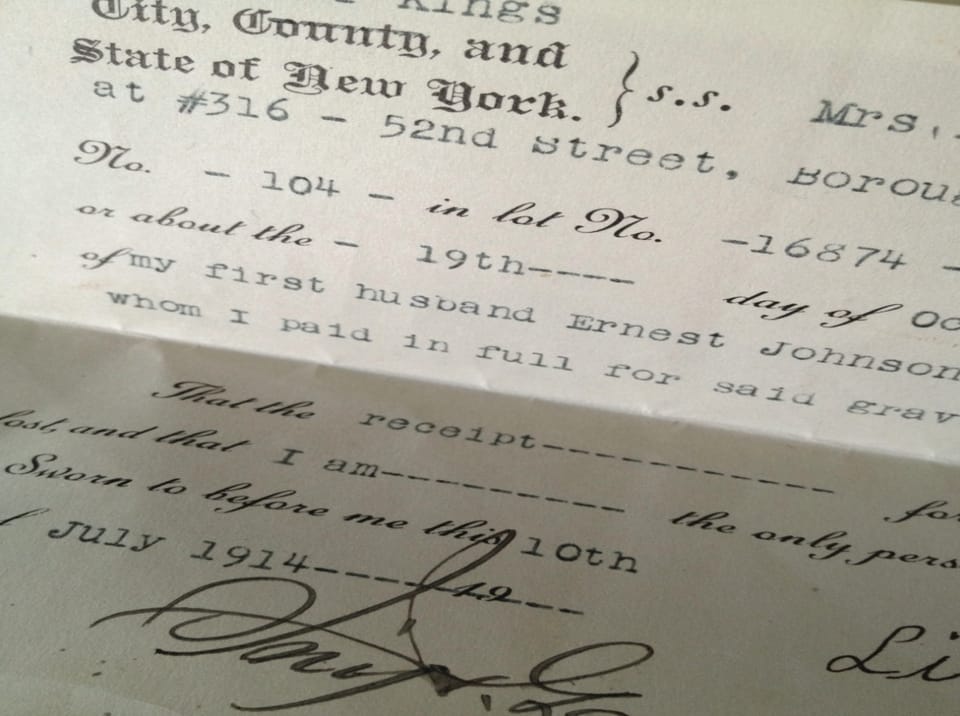 Kings
City, County, and
State of New York. } s.s. Mrs.
at #316 - 52nd Street, Borou
No. - 104 - in lot No. -16874 -
or about the - 19th---- day of Oc
of my first husband Ernest Johnson
whom I paid in full for said grav
That the receipt------------ for
lost, and that I am---------- the only pers
Sworn to before me this 10th
July 1914-----19---
Li